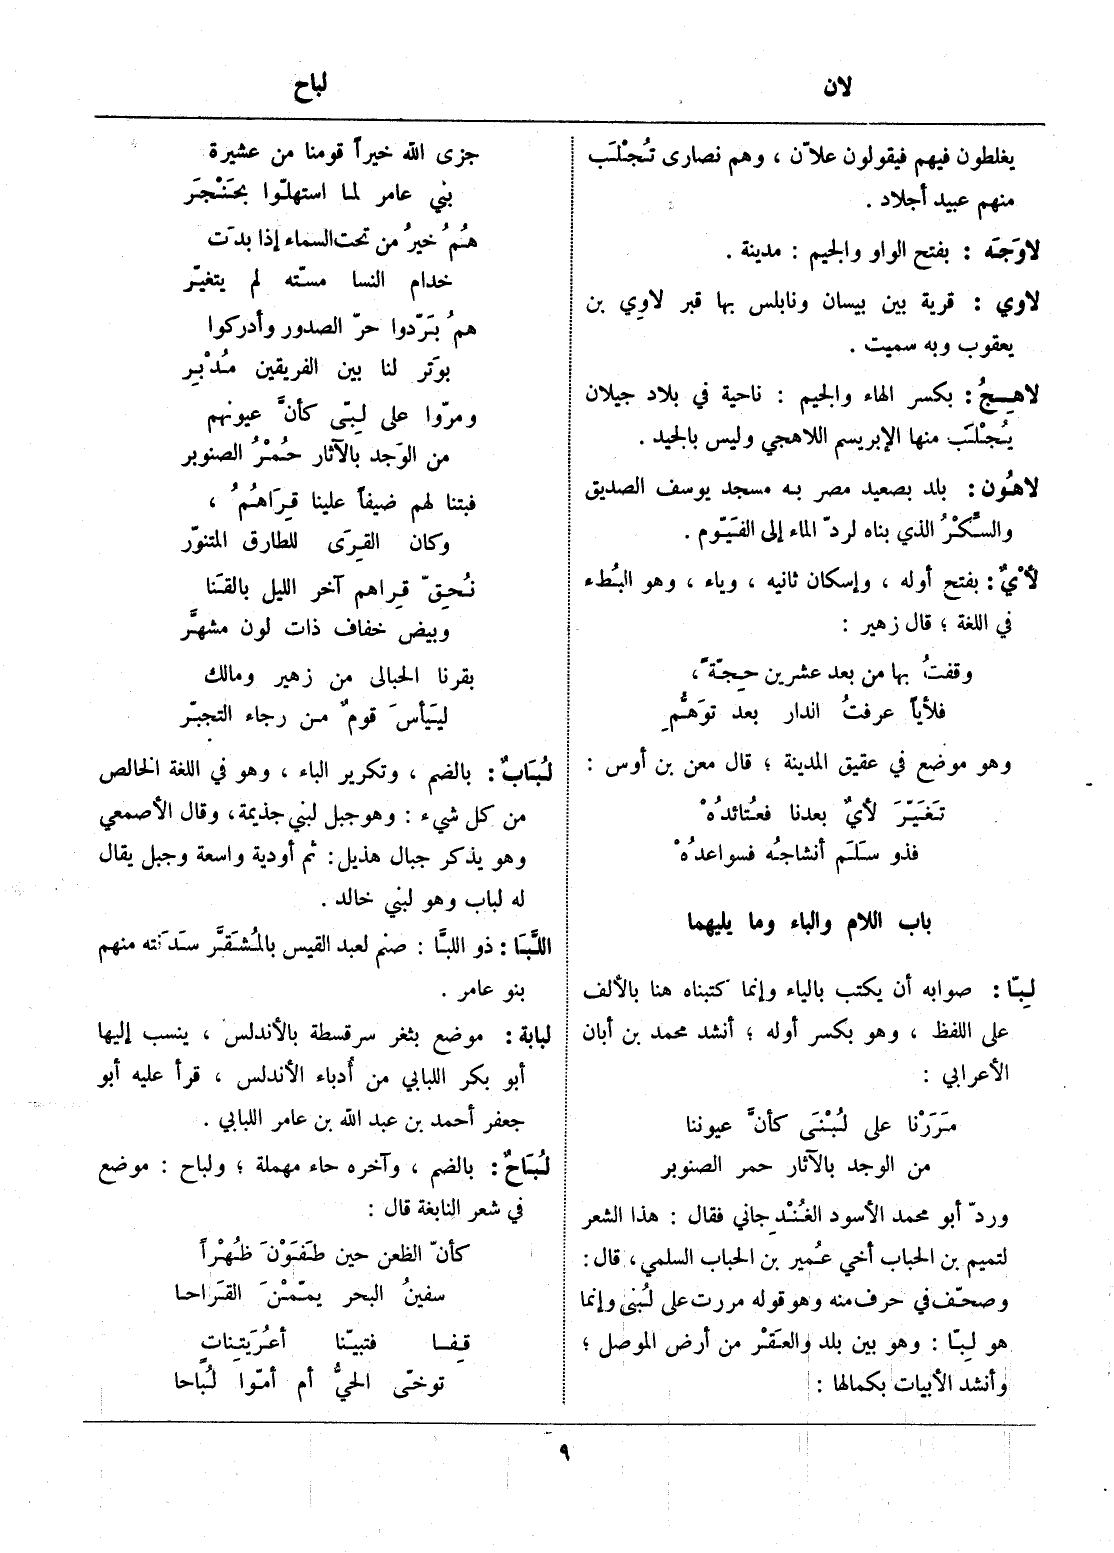 لان
لباح
يغلطون فيهم فيقولون علاّن ، وهم نصارى تُجْلَب
منهم عبيد أجلاد .
لاوَجَه : بفتح الواو والجيم : مدينة .
لاوي : قرية بين بيسان ونابلس بها قبر لاوِي بن
يعقوب وبه سميت .
لاهِجُ : بكسر الهاء والجيم : ناحية في بلاد جيلان
يُجْلَب منها الإبريسم اللاهجي وليس بالجيد .
لاهُون : بلد بصعيد مصر به مسجد يوسف الصديق
والسَّكْرُ الذي بناه لردّ الماء إلى الفَيّوم .
لأْيٌ : بفتح أوله ، وإسكان ثانيه ، وياء ، وهو البُطء
في اللغة ؛ قال زهير :
وقفتُ بها من بعد عشرين حِجّةً ،
فلأياً عرفتُ الدار بعد توَهُّمِ
وهو موضع في عقيق المدينة ؛ قال معن بن أوس :
تَغَيّرَ لأيٌ بعدنا فعُتائدُهْ
فذو سَلَم أنشاجُه فسواعدُهْ
باب اللام والباء وما يليهما
لِبّا : صوابه أن يكتب بالياء وإنما كتبناه هنا بالألف
على اللفظ ، وهو بكسر أوله ؛ أنشد محمد بن أبان
الأعرابي :
مَرَرْنا على لُبْنَى كأنَّ عيوننا
من الوجد بالآثار حمر الصنوبر
وردّ أبو محمد الأسود الغُنْدِجاني فقال : هذا الشعر
لتميم بن الحباب أخي عُمير بن الحباب السلمي ، قال :
وصحّف في حرف منه وهو قوله مررت على لُبنى وإنما
هو لِبّا : وهو بين بلد والعَقْر من أرض الموصل ؛
وأنشد الأبيات بكمالها :
جزى الله خيراً قومنا من عشيرة
بني عامر لما استهلّوا بحَنْجَر
هُمُ خيرُ من تحت السماء إذا بدَت
خدام النسا مسّته لم يتغيّر
همُ بَرّدوا حرّ الصدور وأدركوا
بوَتر لنا بين الفريقين مُدْبِر
ومرّوا على لِبّى كأنَّ عيونهم
من الوَجد بالآثار حُمْرُ الصنوبر
فبتنا لهم ضيفاً علينا قِرَاهُمُ ،
وكان القِرَى للطارق المتنوّر
نُحِقّ قِراهم آخر الليل بالقَنا
وبيض خفاف ذات لون مشهَّر
بقرنا الحبالى من زهير ومالك
ليَيأسَ قومٌ من رجاء التجبّر
لُبَابٌ : بالضم ، وتكرير الباء ، وهو في اللغة الخالص
من كل شيء : وهو جبل لبني جذيمة ، وقال الأصمعي
وهو يذكر جبال هذيل : ثم أودية واسعة وجبل يقال
له لباب وهو لبني خالد .
اللَّبَا : ذو اللبَّا : صنم لعبد القيس بالمُشَقَّر سَدَنَته منهم
بنو عامر .
لبابة : موضع بثغر سرقسطة بالأندلس ، ينسب إليها
أبو بكر اللبابي من أُدباء الأندلس ، قرأ عليه أبو
جعفر أحمد بن عبد الله بن عامر اللبابي .
لُبَاحٌ : بالضم ، وآخره حاء مهملة ؛ ولباح : موضع
في شعر النابغة قال :
كأنّ الظعن حين طَفَوْنَ ظُهْراً
سفينُ البحر يمّمْنَ القَراحا
قِفا فتبيّنا أعُرَيْتِناتٍ
توخّى الحيُّ أم أمّوا لُباحا
٩